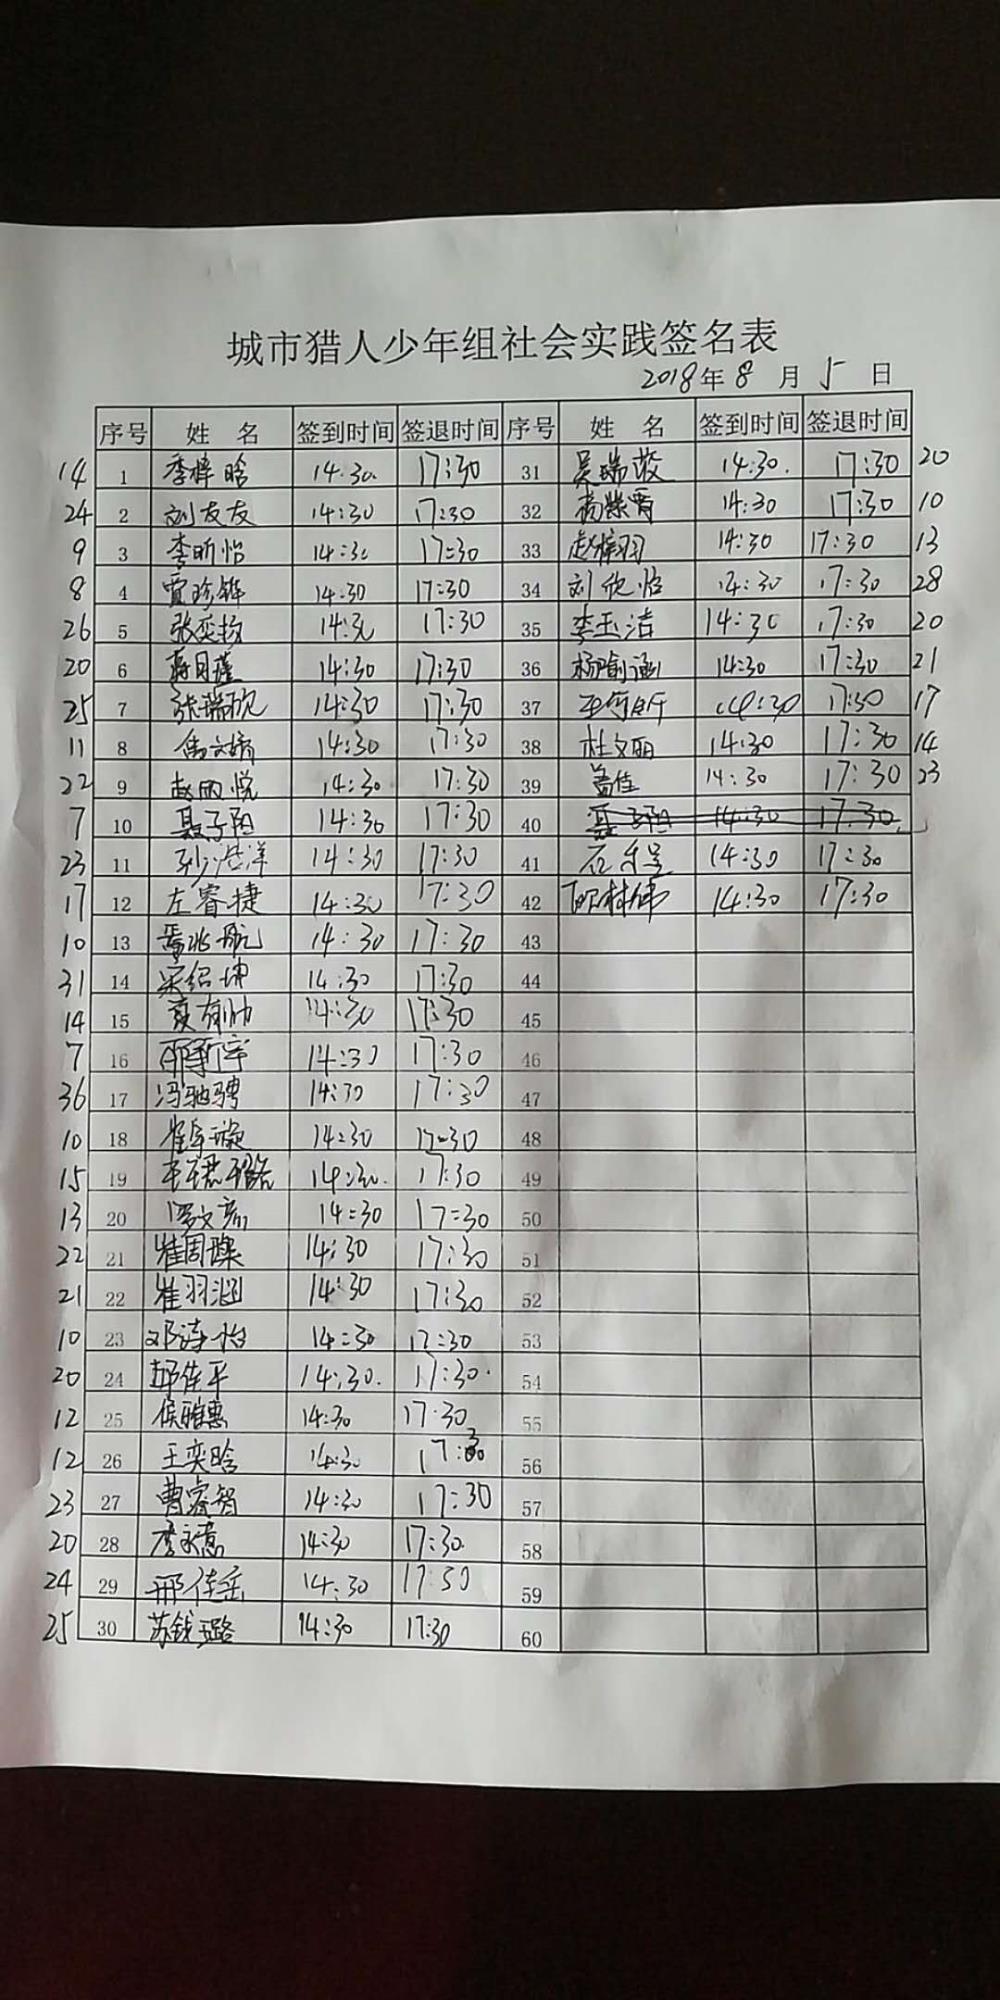 城市猎人少年组社会实践签名表
2018年 8 月 5 日
序号 姓 名 签到时间 签退时间 序号 姓 名 签到时间 签退时间
14 1 李梓晗 14:30. 17:30 31 吴瑞 14:30. 17:30 20
24 2 刘友友 14:30 17:30 32 杨紫霄 14:30 17:30 10
9 3 李昕怡 14:30 17:30 33 赵梓羽 14:30 17:30 13
8 4 贾珍铧 14:30 17:30 34 刘悦怡 14:30 17:30 28
26 5 张奕扬 14:30 17:30 35 李玉洁 14:30 17:30 20
20 6 14:30 17:30 36 杨瑜涵 14:30 17:30 21
25 7 张瑞欣 14:30 17:30 37 14:30 17:30 17
11 8 14:30 17:30 38 杜文丽 14:30 17:30 14
22 9 赵丽悦 14:30 17:30 39 苗佳 14:30 17:30 23
7 10 聂子阳 14:30 17:30 40 聂子阳 14:30 17:30
23 11 14:30 17:30 41 14:30 17:30
17 12 左睿捷 14:30 17:30 42 14:30 17:30
10 13 晋兆航 14:30 17:30 43
31 14 宋绍坤 14:30 17:30 44
14 15 夏有帅 14:30 17:30 45
7 16 邢新宇 14:30 17:30 46
36 17 冯驰骋 14:30 17:30 47
10 18 崔阜璇 14:30 17:30 48
15 19 14:30. 17:30 49
13 20 罗文彦 14:30 17:30 50
22 21 崔周璨 14:30 17:30 51
21 22 崔羽涵 14:30 17:30 52
10 23 邓涛怡 14:30 17:30 53
20 24 郝佳平 14:30. 17:30. 54
12 25 侯雅惠 14:30 17:30 55
12 26 王奕晗 14:30 17:30 56
23 27 曹睿智 14:30 17:30 57
20 28 李永慧 14:30 17:30. 58
24 29 邢佳宝 14:30 17:30 59
25 30 苏钱璐 14:30 17:30 60